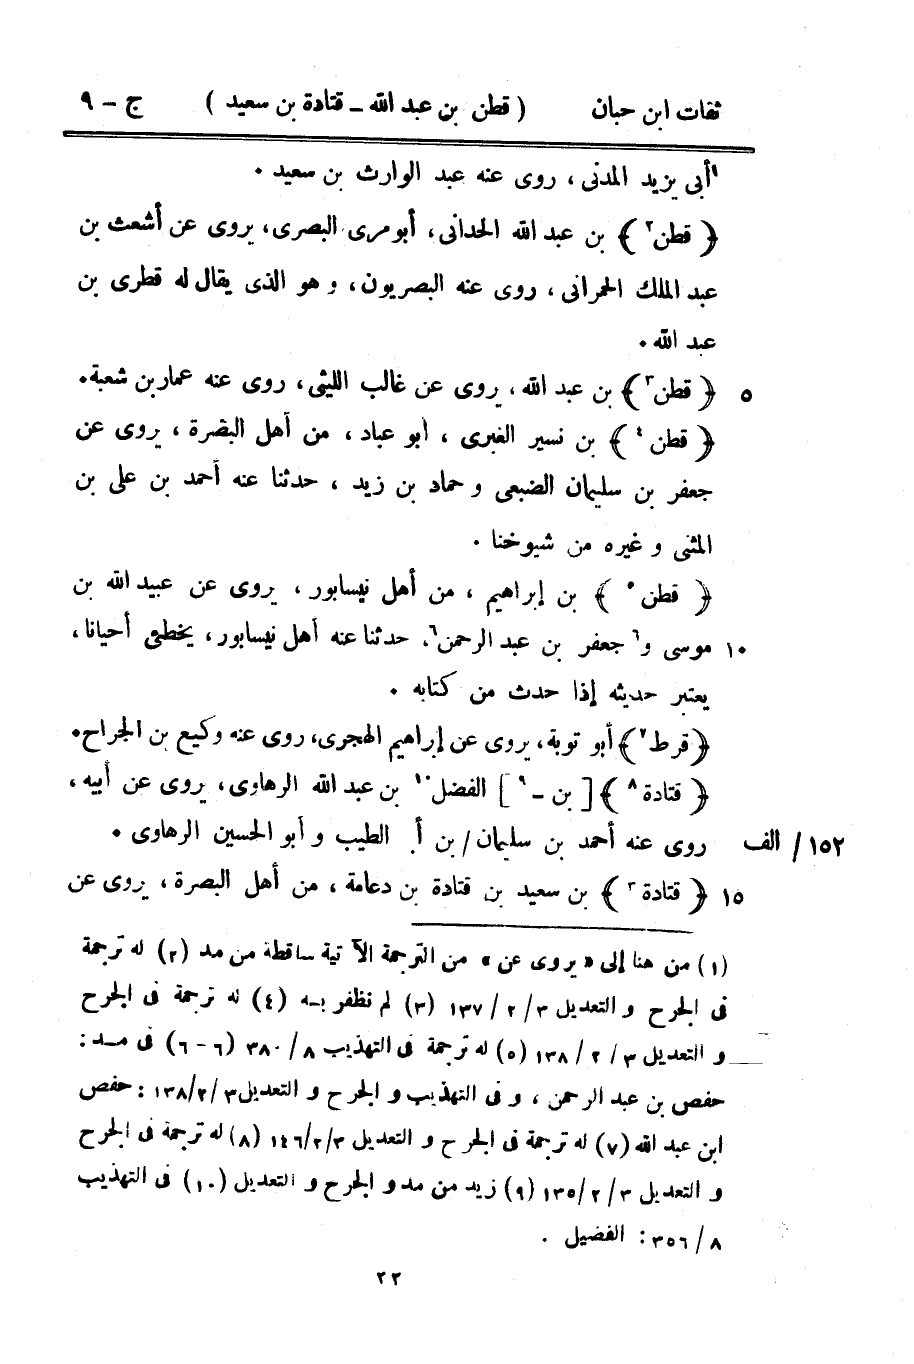 ثقات ابن حبان ( قطن بن عبد الله ـ قتادة بن سعيد ) ج - ٩
١أبى يزيد المدنى ، روى عنه عبد الوارث بن سعيد .
﴿ قطن٢ ﴾ بن عبد الله الحدانى ، أبو مرى البصرى ، يروى عن أشعث بن
عبد الملك الحمرانى ، روى عنه البصريون ، و هو الذى يقال له قطرى بن
عبد الله .
٥ ﴿ قطن٣ ﴾ بن عبد الله ، يروى عن غالب الليثى ، روى عنه عمار بن شعبة .
﴿ قطن ٤ ﴾ بن نسير الغبرى ، أبو عباد ، من أهل البصرة ، يروى عن
جعفر بن سليمان الضبعى و حماد بن زيد ، حدثنا عنه أحمد بن على بن
المثنى و غيره من شيوخنا .
﴿ قطن ٥ ﴾ بن إبراهيم ، من أهل نيسابور ، يروى عن عبيد الله بن
١٠ موسى و٦ جعفر بن عبد الرحمن٦ . حدثنا عنه أهل نيسابور ، يخطئ أحيانا ،
يعتبر حديثه إذا حدث من كتابه .
﴿ قرط٧ ﴾ أبو توبة ، يروى عن إبراهيم الهجرى ، روى عنه وكيع بن الجراح .
﴿ قتادة ٨ ﴾ [ بن ـ ٩ ] الفضل١٠ بن عبد الله الرهاوى ، يروى عن أبيه ،
١٥٢ / الف روى عنه أحمد بن سليمان / بن أ الطيب و أبو الحسين الرهاوى .
١٥ ﴿ قتادة ٣ ﴾ بن سعيد بن قتادة بن دعامة ، من أهل البصرة ، يروى عن
(١) من هنا إلى « يروى عن » من الترجمة الآتية ساقطة من مد (٢) له ترجمة
فى الجرح و التعديل ٣ / ٢ / ١٣٧ (٣) لم نظفر به (٤) له ترجمة فى الجرح
و التعديل ٣ / ٢ / ١٣٨ (٥) له ترجمة فى التهذيب ٨ / ٣٨٠ (٦ - ٦) فى مد :
حفص بن عبد الرحمن ، و فى التهذيب و الجرح و التعديل ٣ / ٢ / ١٣٨ : حفص
ابن عبد الله (٧) له ترجمة فى الجرح و التعديل ٣ / ٢ / ١٤٦ (٨) له ترجمة فى الجرح
و التعديل ٣ / ٢ / ١٣٥ (٩) زيد من مد و الجرح و التعديل (١٠) فى التهذيب
٨ / ٣٥٦ : الفضيل .
٢٢